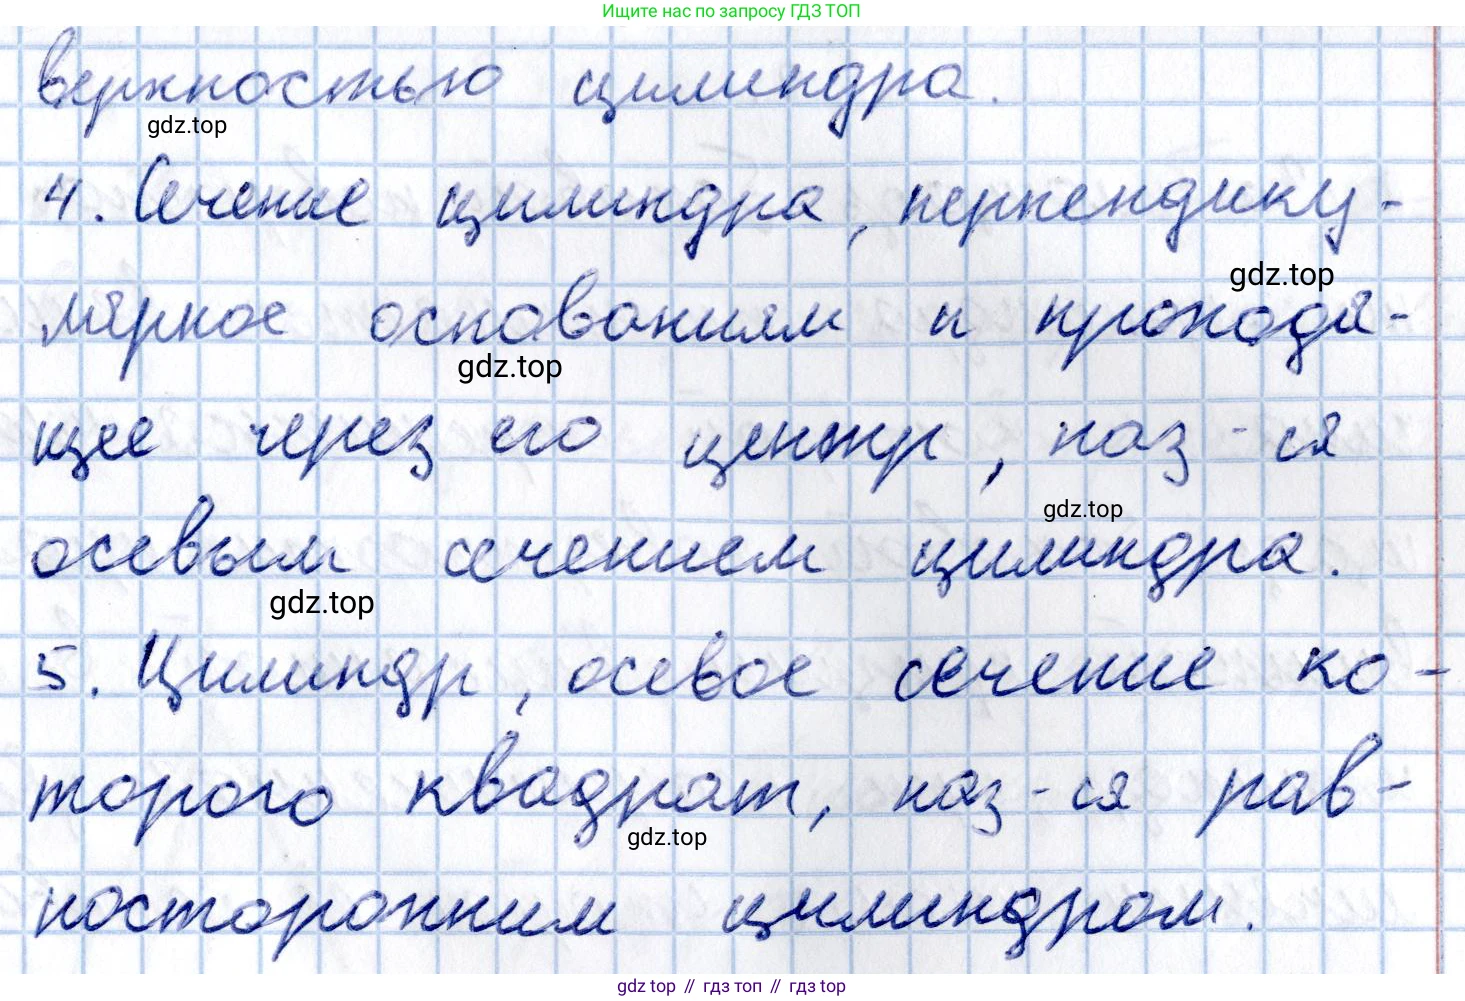 Ищите нас по запросу ГДЗ ТОП
верхностью цилиндра.
gdz.top
4. Сечение цилиндра, перпендику-
gdz.top
лярное основаниям и проходя-
gdz.top
щее через его центр, наз-ся
gdz.top
осевым сечением цилиндра.
gdz.top
5. Цилиндр, осевое сечение ко-
торого квадрат, наз-ся рав-
gdz.top
носторонним цилиндром.
gdz top // гдз топ // гдз top